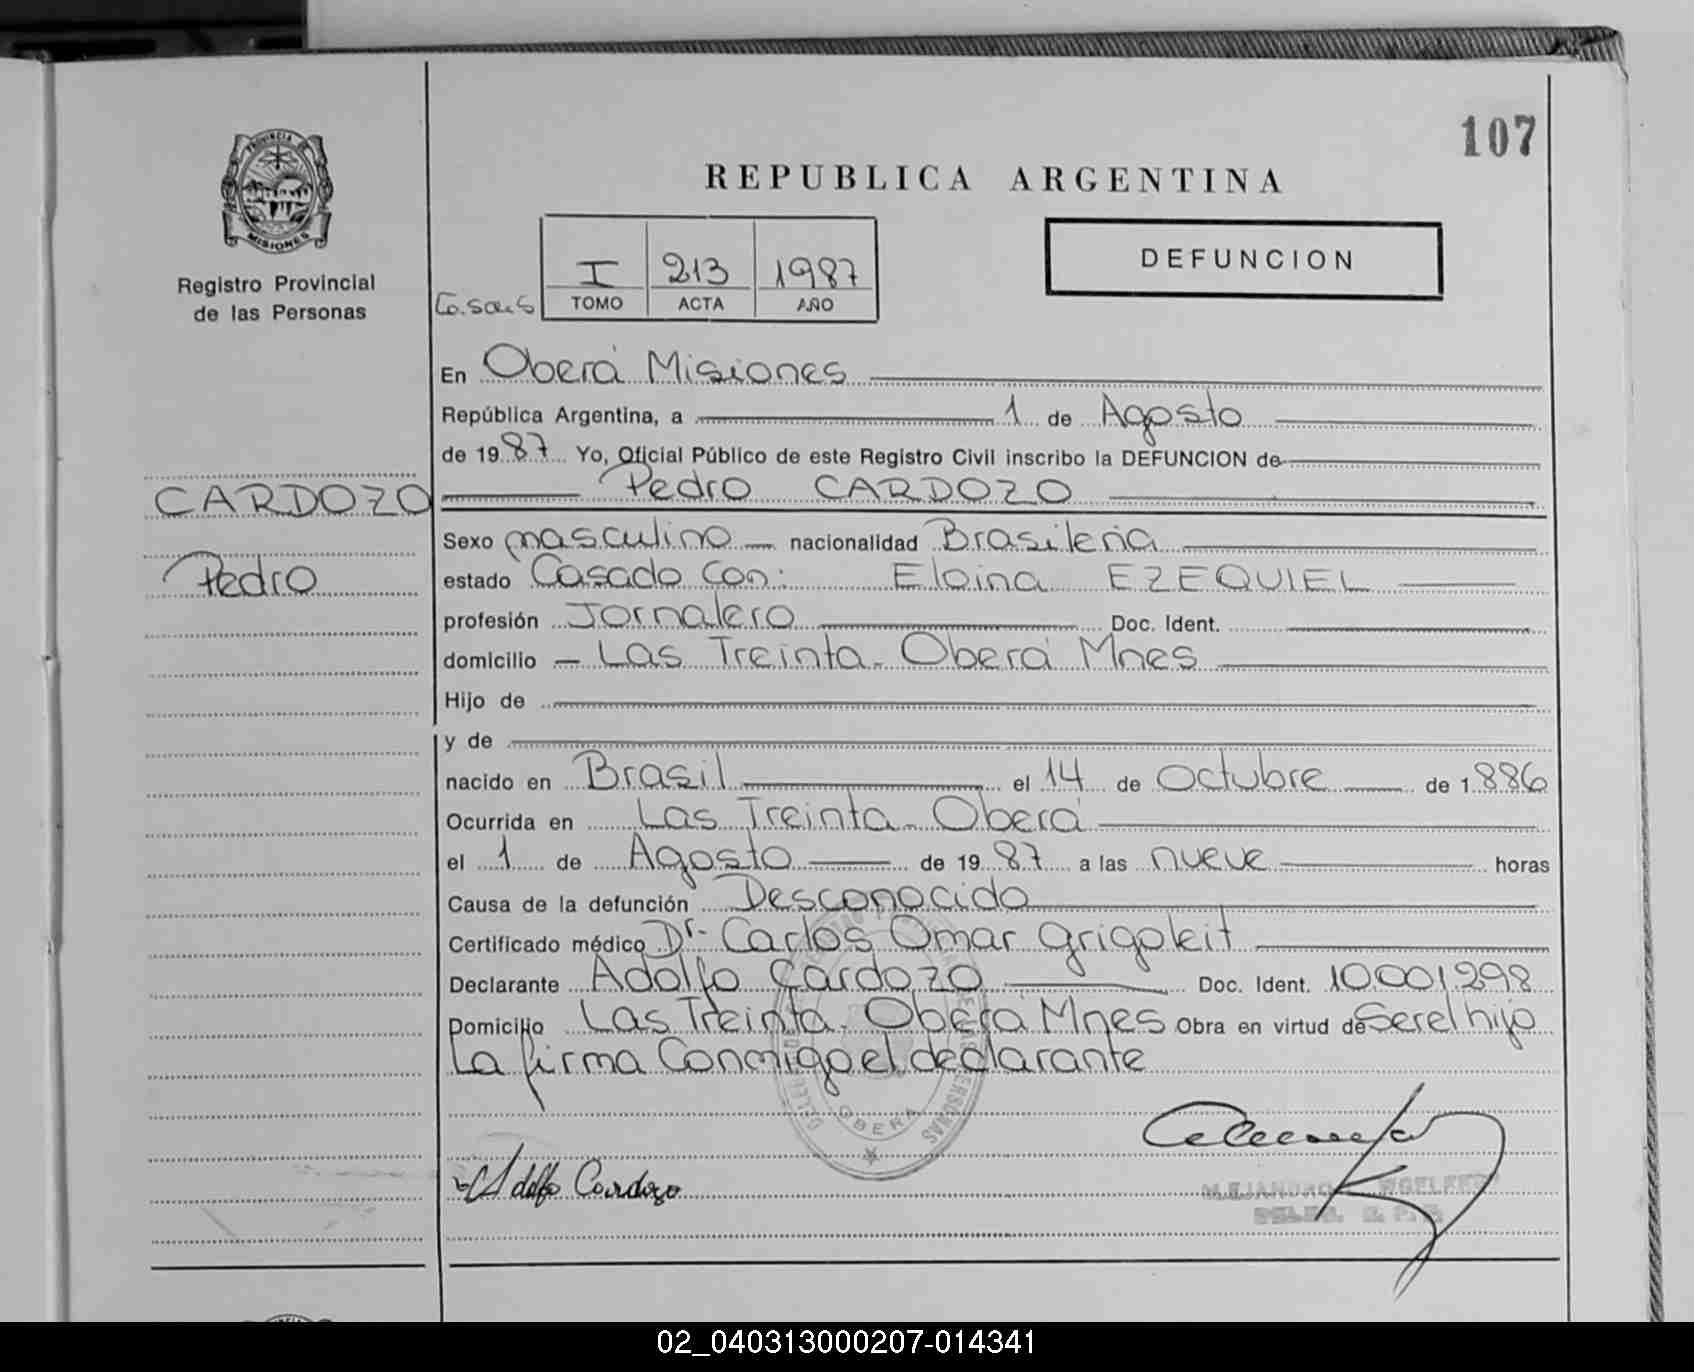 107
PROVINCIA DE
MISIONES
Registro Provincial
de las Personas
REPUBLICA ARGENTINA
I 213 1987
TOMO ACTA AÑO
DEFUNCION
En Oberá Misiones
República Argentina, a 1 de Agosto
de 1987 Yo, Oficial Público de este Registro Civil inscribo la DEFUNCION de
CARDOZO
Pedro
Pedro CARDOZO
Sexo masculino nacionalidad Brasileña
estado Casado Con: Eloina EZEQUIEL
profesión Jornalero Doc. Ident.
domicilio Las Treinta. Oberá Mnes
Hijo de
y de
nacido en Brasil el 14 de Octubre de 1886
Ocurrida en Las Treinta. Oberá
el 1 de Agosto de 1987 a las nueve horas
Causa de la defunción Desconocida
Certificado médico Dr. Carlos Omar Grigoleit
Declarante Adolfo Cardozo Doc. Ident. 10.001.298
Domicilio Las Treinta. Oberá Mnes Obra en virtud de Ser el hijo
La firma Conmigo el declarante
OBERA
Adolfo Cardozo
02_040313000207-014341